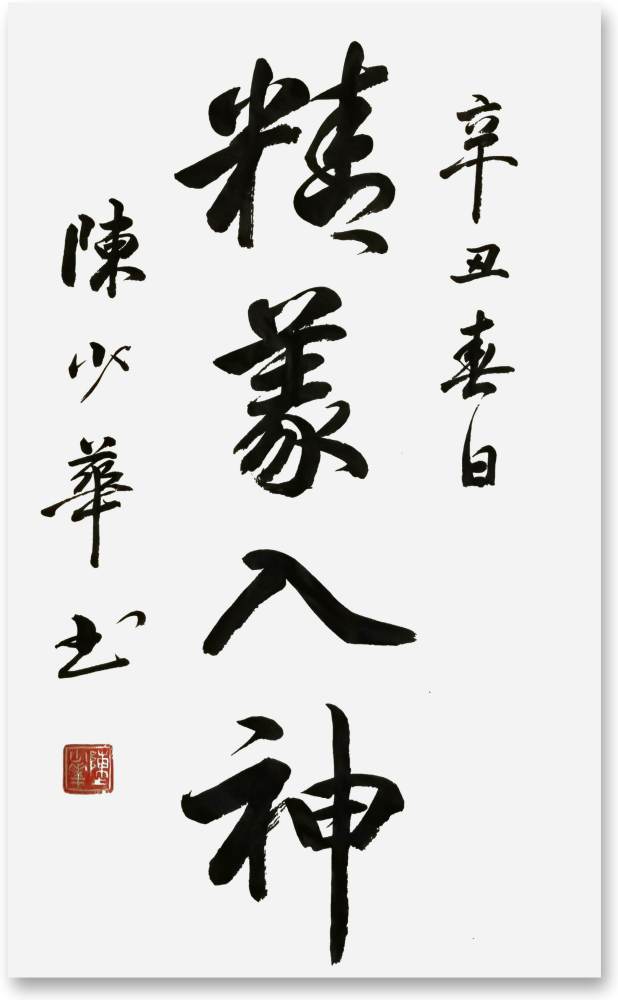 辛丑春日
精義入神
陳少華书
陳少華